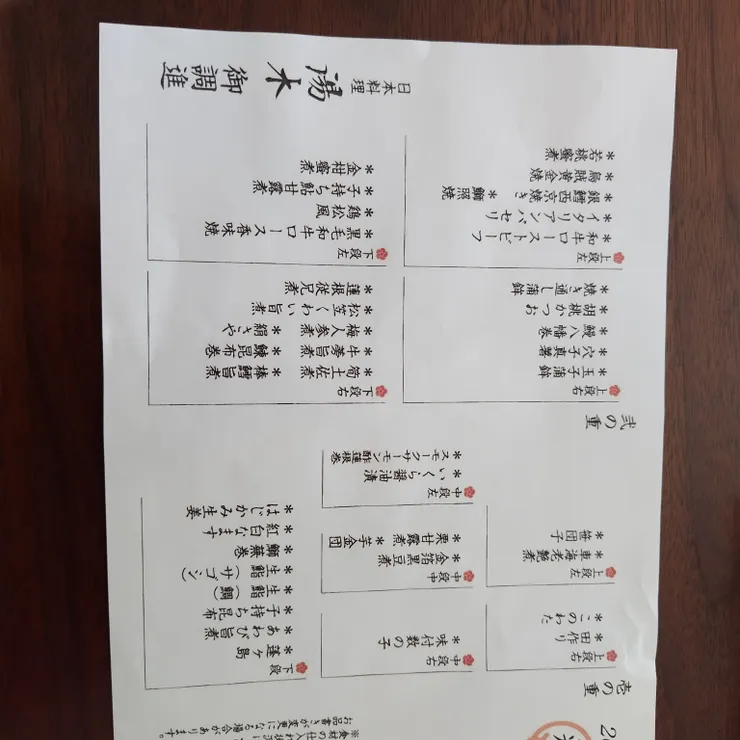 壱の重
上段右
*田作り
*このわた
上段左
*車海老艶煮
*笹団子
中段右
*味付数の子
中段中
*金箔黒豆煮
*栗甘露煮 *芋金団
中段左
*いくら醤油漬
*スモークサーモン酢蓮根巻
下段
*蓬ヶ島
*あわび旨煮
*子持ち昆布
*生鮨（鯛）
*生鮨（サゴシ）
*鰤蕪巻
*紅白なます
*はじかみ生姜
お品書きが変更になる場合があります。
弐の重
上段右
*玉子蒲鉾
*穴子真薯
*鰻八幡巻
*胡桃かつお
*焼き通し蒲鉾
上段左
*和牛ローストビーフ
*イタリアンパセリ
*銀鱈西京焼き *鰤照焼
*烏賊黄金焼
*若桃蜜煮
下段右
*筍土佐煮 *棒鱈旨煮
*牛蒡旨煮 *鰊昆布巻
*梅人参煮 *絹さや
*松笠くわい旨煮
*蓮根徒兄煮
下段左
*黒毛和牛ロース香味焼
*鶏松風
*子持ち鮎甘露煮
*金柑蜜煮
日本料理
湯木
御調進